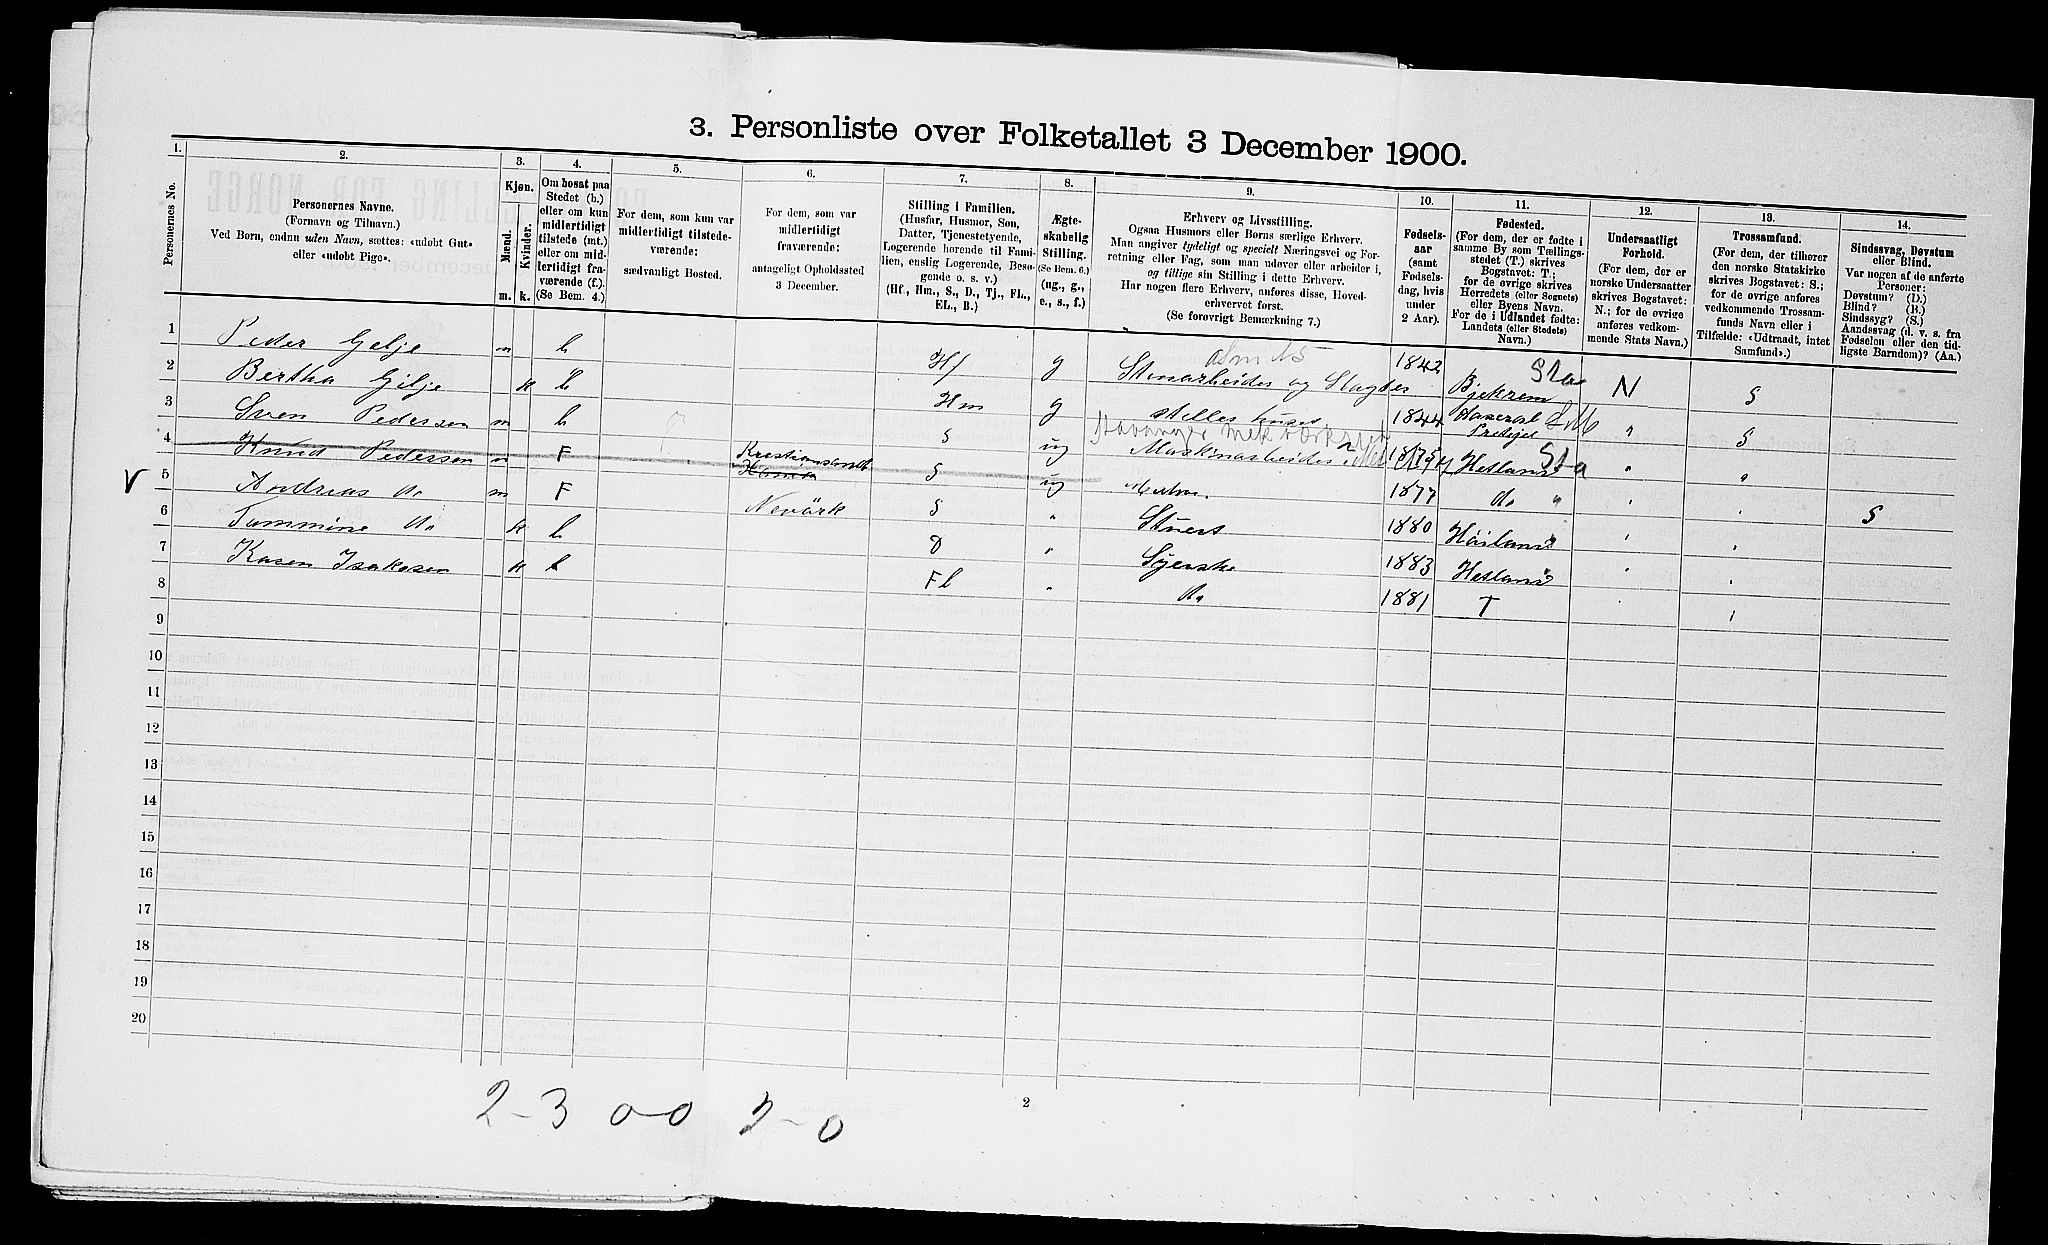 3. Personliste over Folketallet 3 December 1900.
1. 2. 3. 4. 5. 6. 7. 8. 9. 10. 11. 12. 13. 14.
Personernes No.
Personernes Navne.
(Fornavn og Tilnavn.)
Ved Børn, endnu uden Navn, sættes: «udøbt Gut»
eller «udøbt Pige».
Kjøn.
Mænd.
Kvinder.
m. k.
Om bosat paa
Stedet (b.)
eller om kun
midlertidigt
tilstede (mt.)
eller om mid-
lertidigt fra-
værende (f.).
(Se Bem. 4.)
For dem, som kun var
midlertidigt tilstede-
værende:
sædvanligt Bosted.
For dem, som var
midlertidigt
fraværende:
antageligt Opholdssted
3 December.
Stilling i Familien.
(Husfar, Husmor, Søn,
Datter, Tjenestetyende,
Logerende hørende til Fami-
lien, enslig Logerende, Besø-
gende o. s. v.)
(Hf., Hm., S., D., Tj., FL.,
EL., B.)
Ægte-
skabelig
Stilling.
(Se Bem. 6.)
(ug., g.,
e., s., f.)
Erhverv og Livsstilling.
Ogsaa Husmors eller Børns særlige Erhverv.
Man angiver tydeligt og specielt Næringsvei og For-
retning eller Fag, som man udøver eller arbeider i,
og tillige sin Stilling i dette Erhverv.
Har nogen flere Erhverv, anføres disse, Hoved-
erhvervet først.
(Se forøvrigt Bemærkning 7.)
Fødsels-
aar
(samt
Fødsels-
dag, hvis
under
2 Aar).
Fødested.
(For dem, der er fødte i
samme By som Tællings-
stedet (T.) skrives
Bogstavet: T.;
for de øvrige skrives
Herredets (eller Sognets)
eller Byens Navn.
For de i Udlandet fødte:
Landets (eller Stedets)
Navn.)
Undersaatligt
Forhold.
(For dem, der er
norske Undersaatter
skrives Bogstavet:
N.; for de øvrige
anføres vedkom-
mende Stats Navn.)
Trossamfund.
(For dem, der tilhører
den norske Statskirke
skrives Bogstavet: S.;
for de øvrige anføres
vedkommende Trossam-
funds Navn eller i
Tilfælde: «Udtraadt, intet
Samfund».)
Sindssvag, Døvstum
eller Blind.
Var nogen af de anførte
Personer:
Døvstum? (D.)
Blind? (B.)
Sindssyg? (S.)
Aandssvag (d. v. s. fra
Fødselen eller den tid-
ligste Barndom)? (Aa.)
1 Peder Gilje m b Hf g Stenarbeider og Slagter 1842 Bjekrem Sta N S
2 Bertha Gilje k b Hm g stelles huset 1844 " S
Stavanger mek værksted
3 Sven Pedersen m b S ug Maskinarbeider 1875 Hetland Sta " "
4 Knud Pedersen m F Kristiansand S ug 1877 do " " "
V 5 Andreas do m F Nevörk S " Stuert 1880 Höiland " " S
6 Tammine do k b D " Syerske 1883 Hetland " "
7 Kasen Isaksen k b Fl " do 1881 T " "
8
9
10
11
12
13
14
15
16
17
18
19
20
2-3 0-0 2-0
2